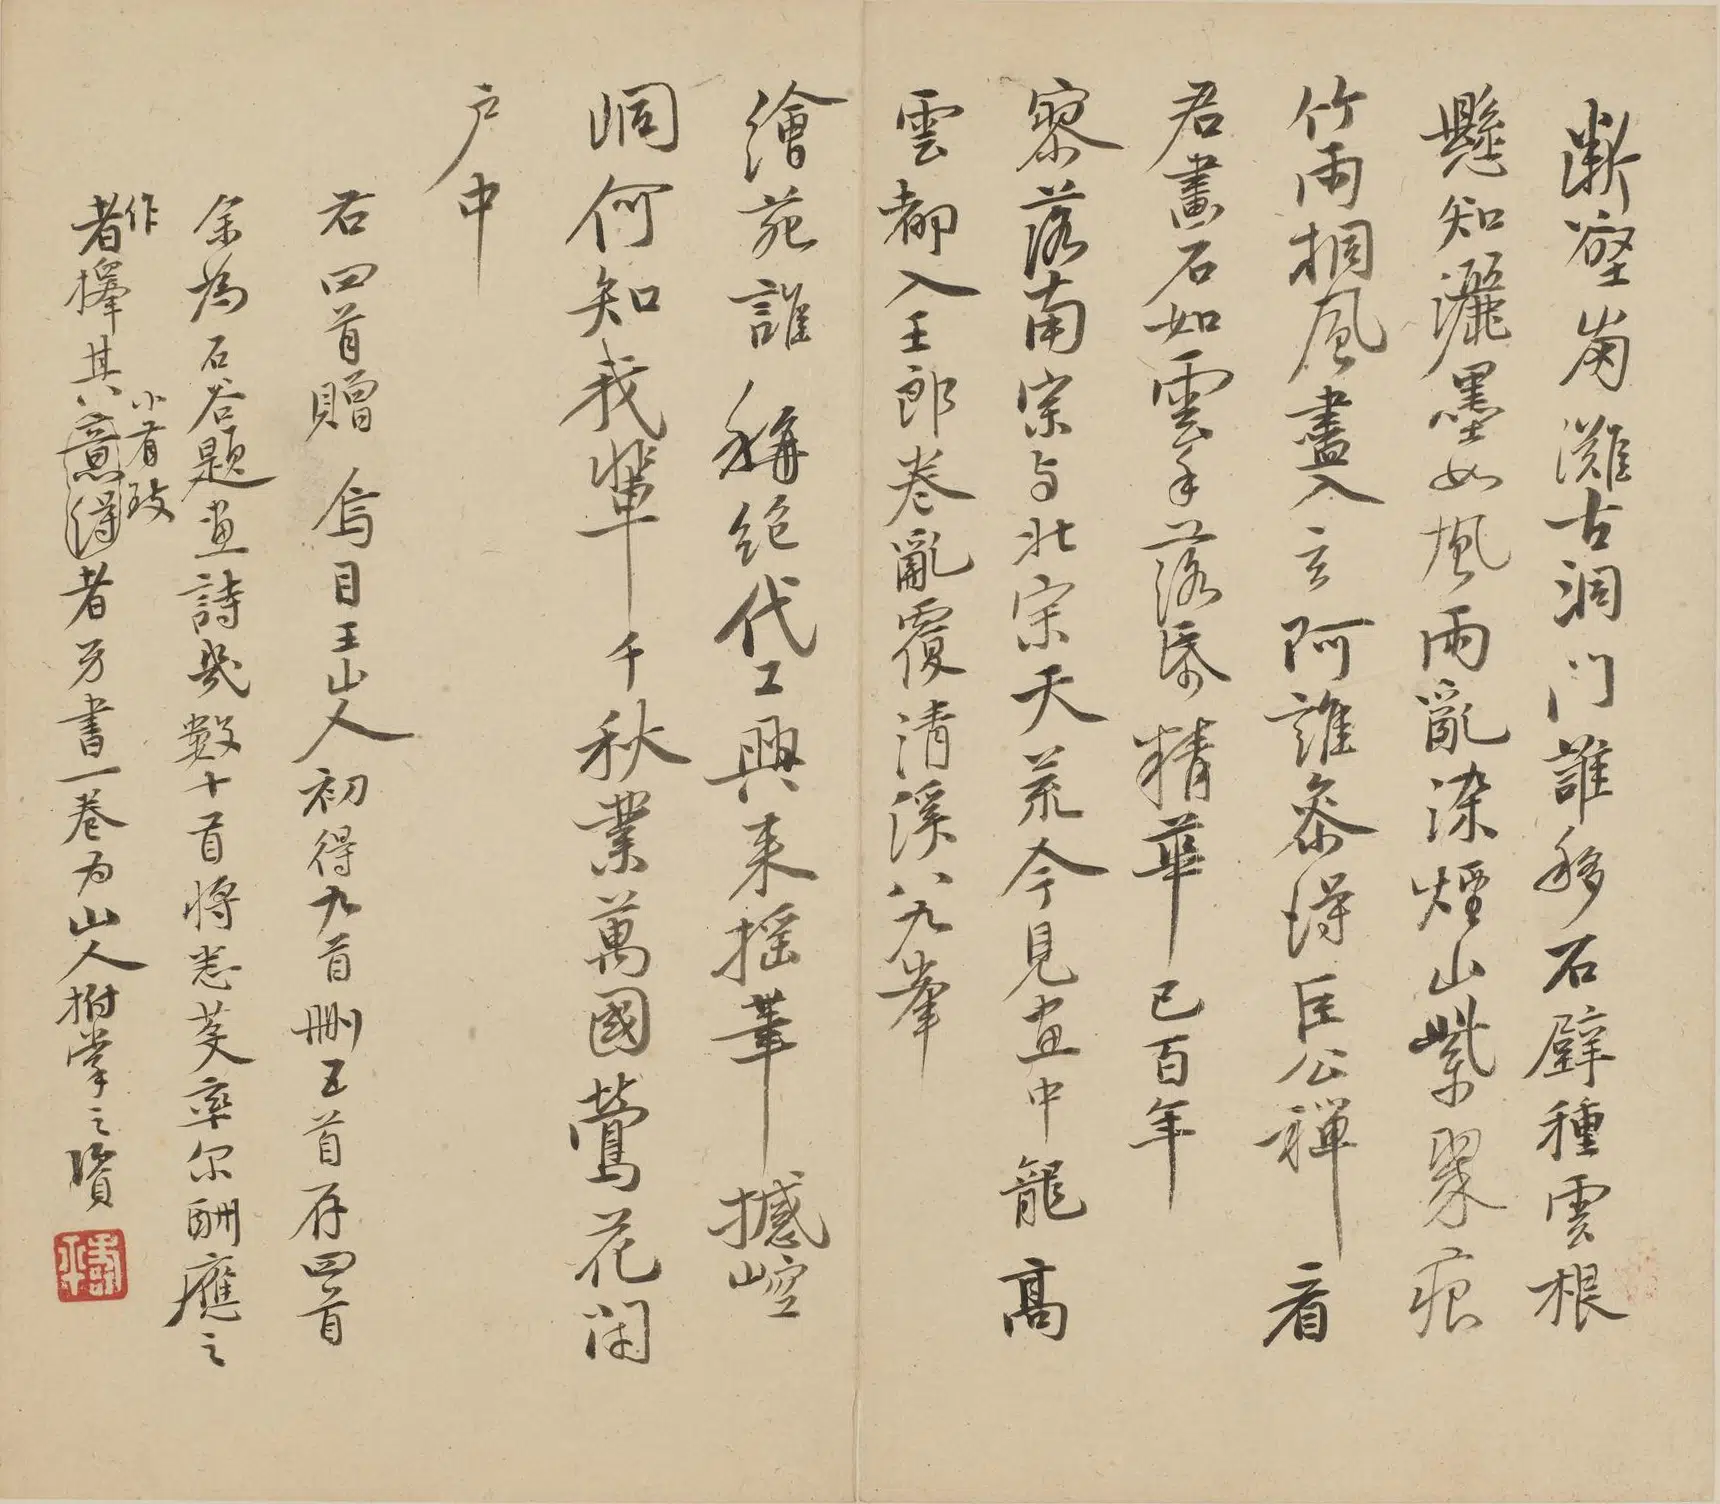 斷壑崩灘古洞門誰移石壁種雲根
懸知灑墨如風雨亂染煙山紫翠痕
竹雨桐風盡入玄阿誰參得巨公禪看
君畫石如雲手落 精華已百年
寥落南宗与北宗天荒今見畫中龍高
雲都入王郎卷亂覆清溪八九峯
繪苑誰稱絕代工興来摇筆撼崆
峒何知我輩千秋業萬國鶯花閉
户中
右四首贈烏目王山人初得九首刪五首存四首
余為石谷題畫詩幾數十首將悉芟率尔酬應之
作
者擇其意得者另書一卷为山人拊掌之資
小有致